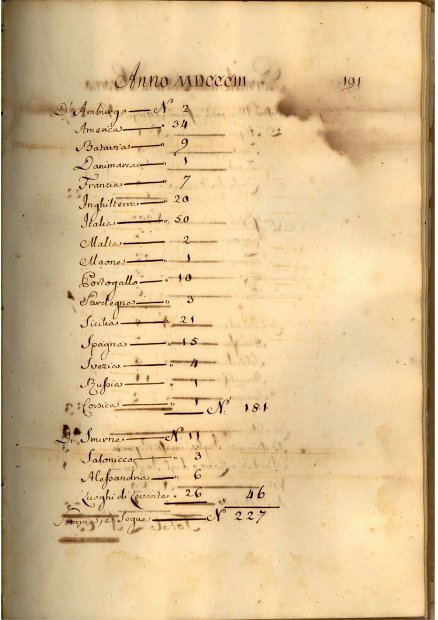 Anno MDCCCIII 191
D'Amburgo N. 2
America " 34
Batavia " 9
Danimarca " 1
Francia " 7
Inghilterra " 20
Italia " 50
Malta " 2
Maone " 1
Portogallo " 10
Sardegna " 3
Sicilia " 21
Spagna " 15
Svezia " 4
Russia " 1
Corsica " 1
N. 181
Di Smirne N. 11
Salonicco " 3
Alessandria " 6
Luoghi di Levante " 26 " 46
Somma, e Segue N. 227